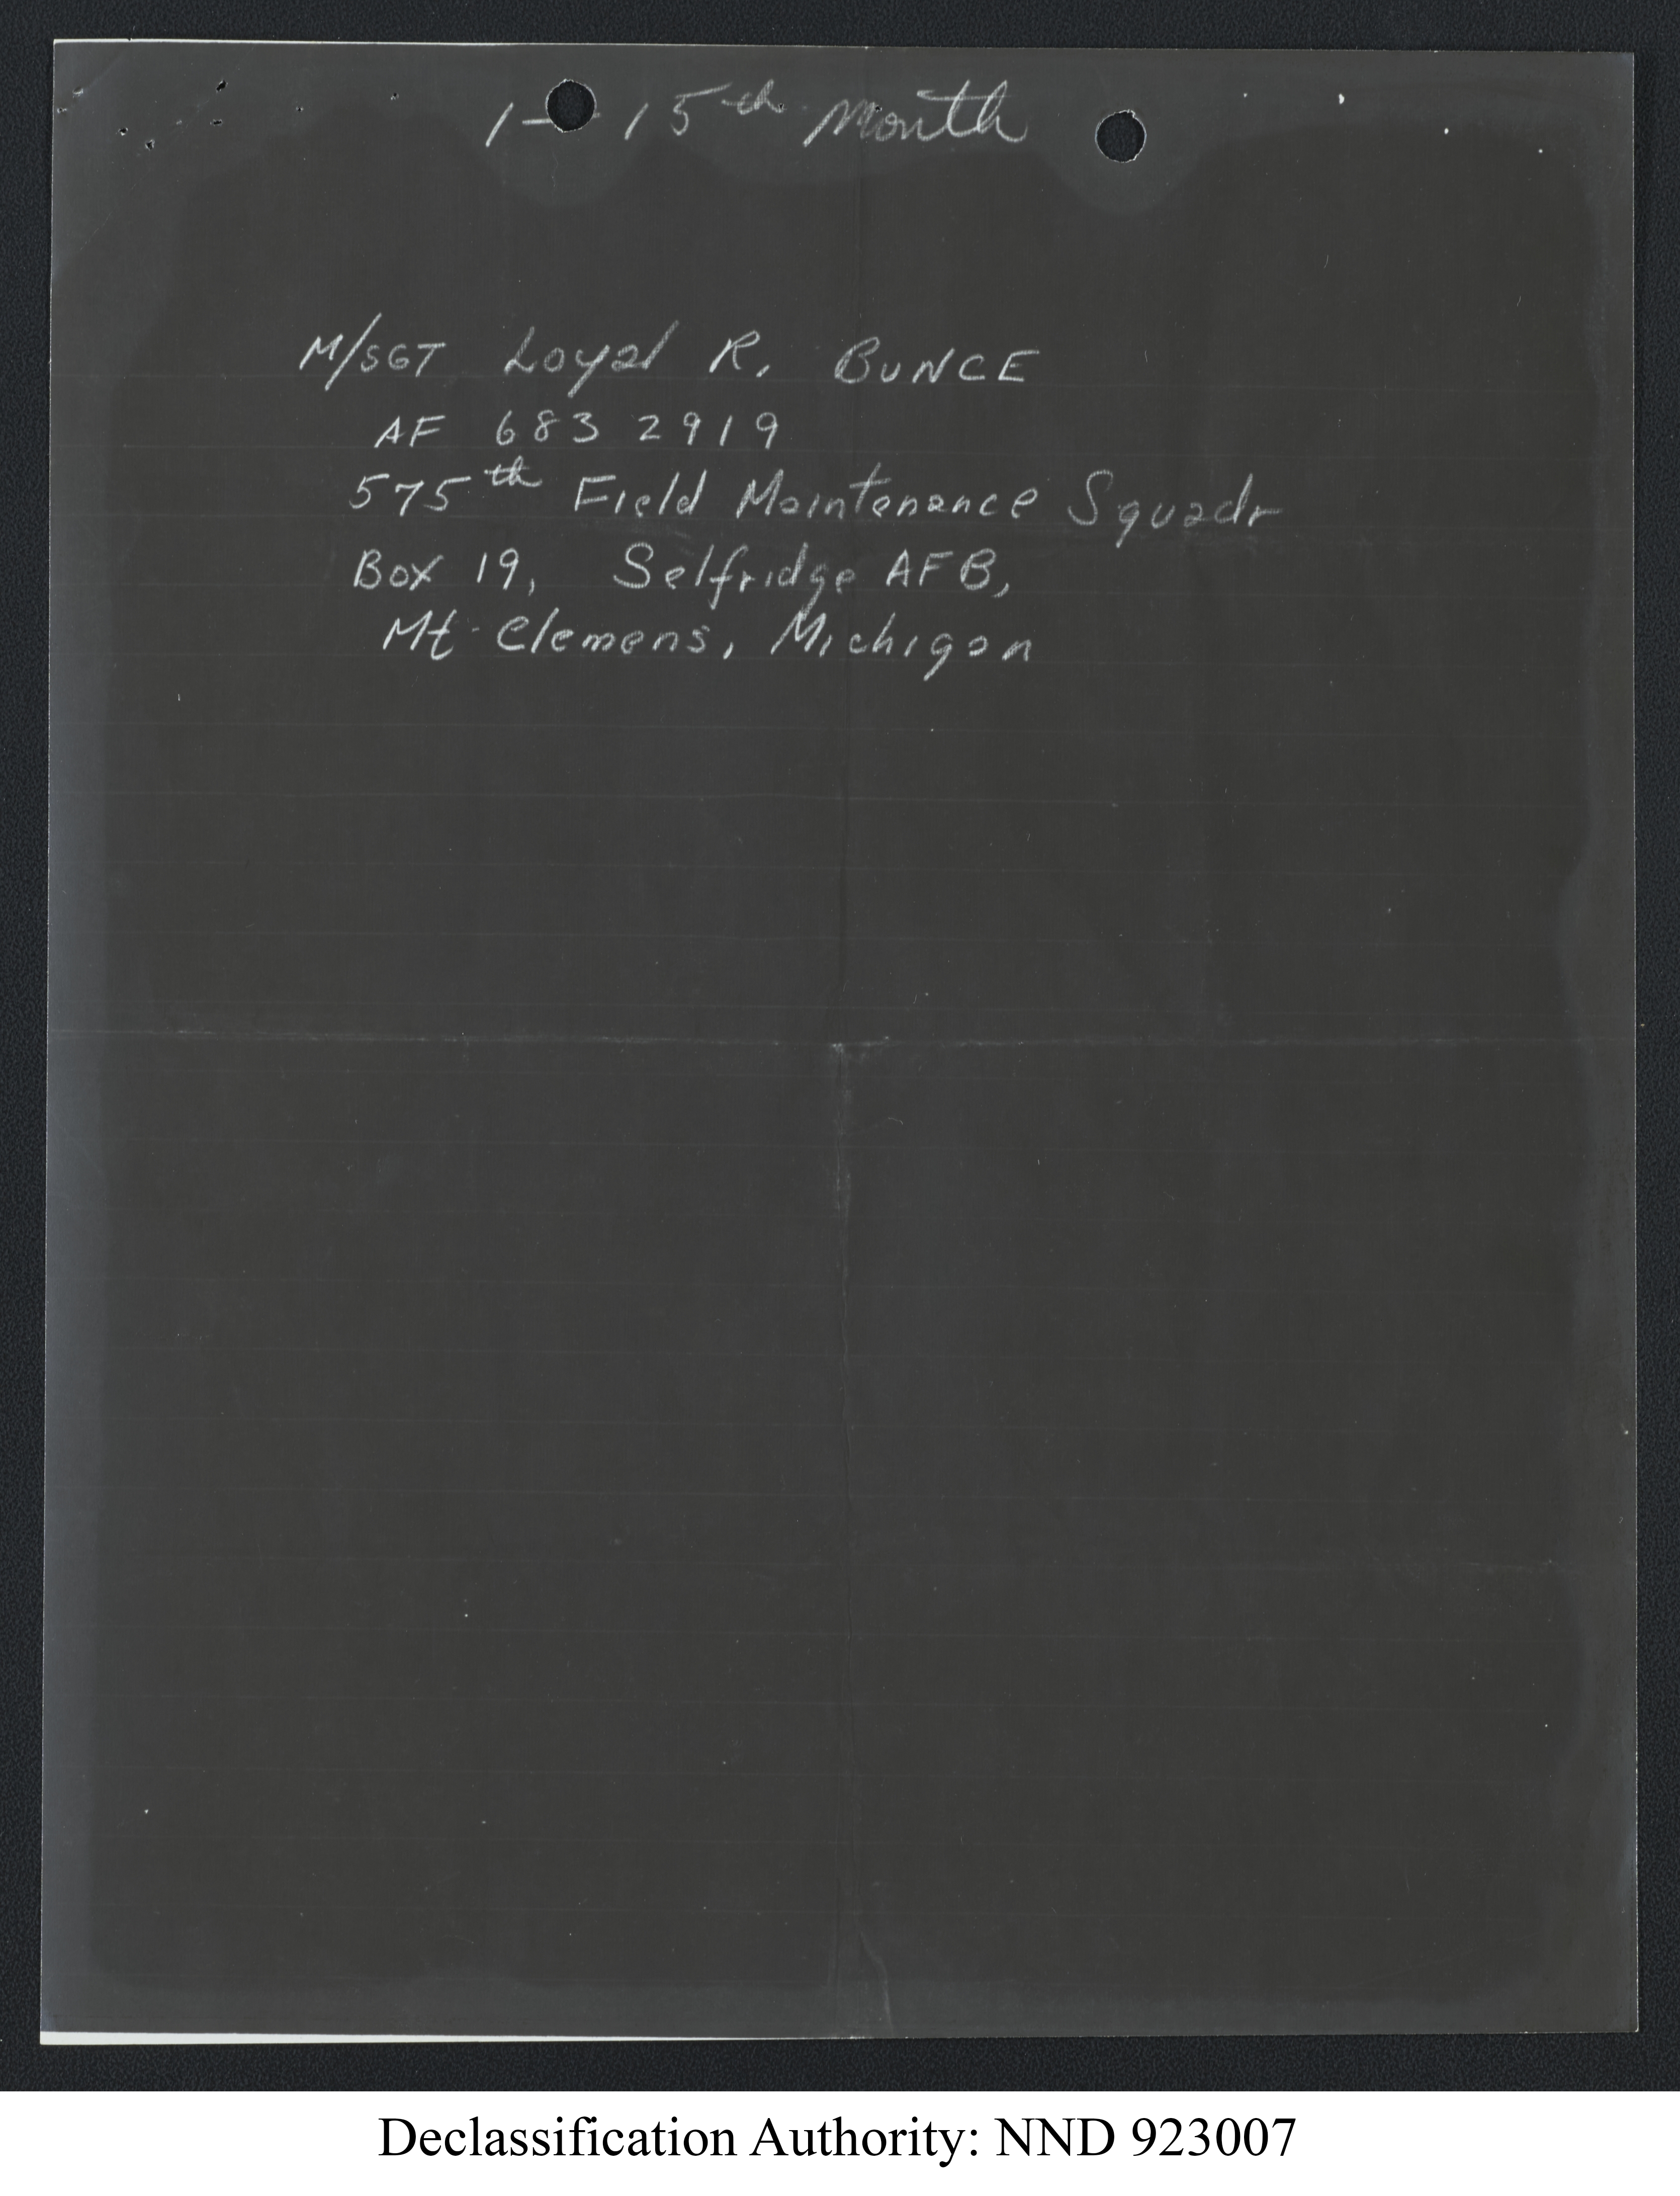 1 - 15th Month
M/SGT Loyal R. BUNCE
AF 683 2919
575th Field Maintenance Squadr
Box 19, Selfridge AFB,
Mt. Clemens, Michigan
Declassification Authority: NND 923007